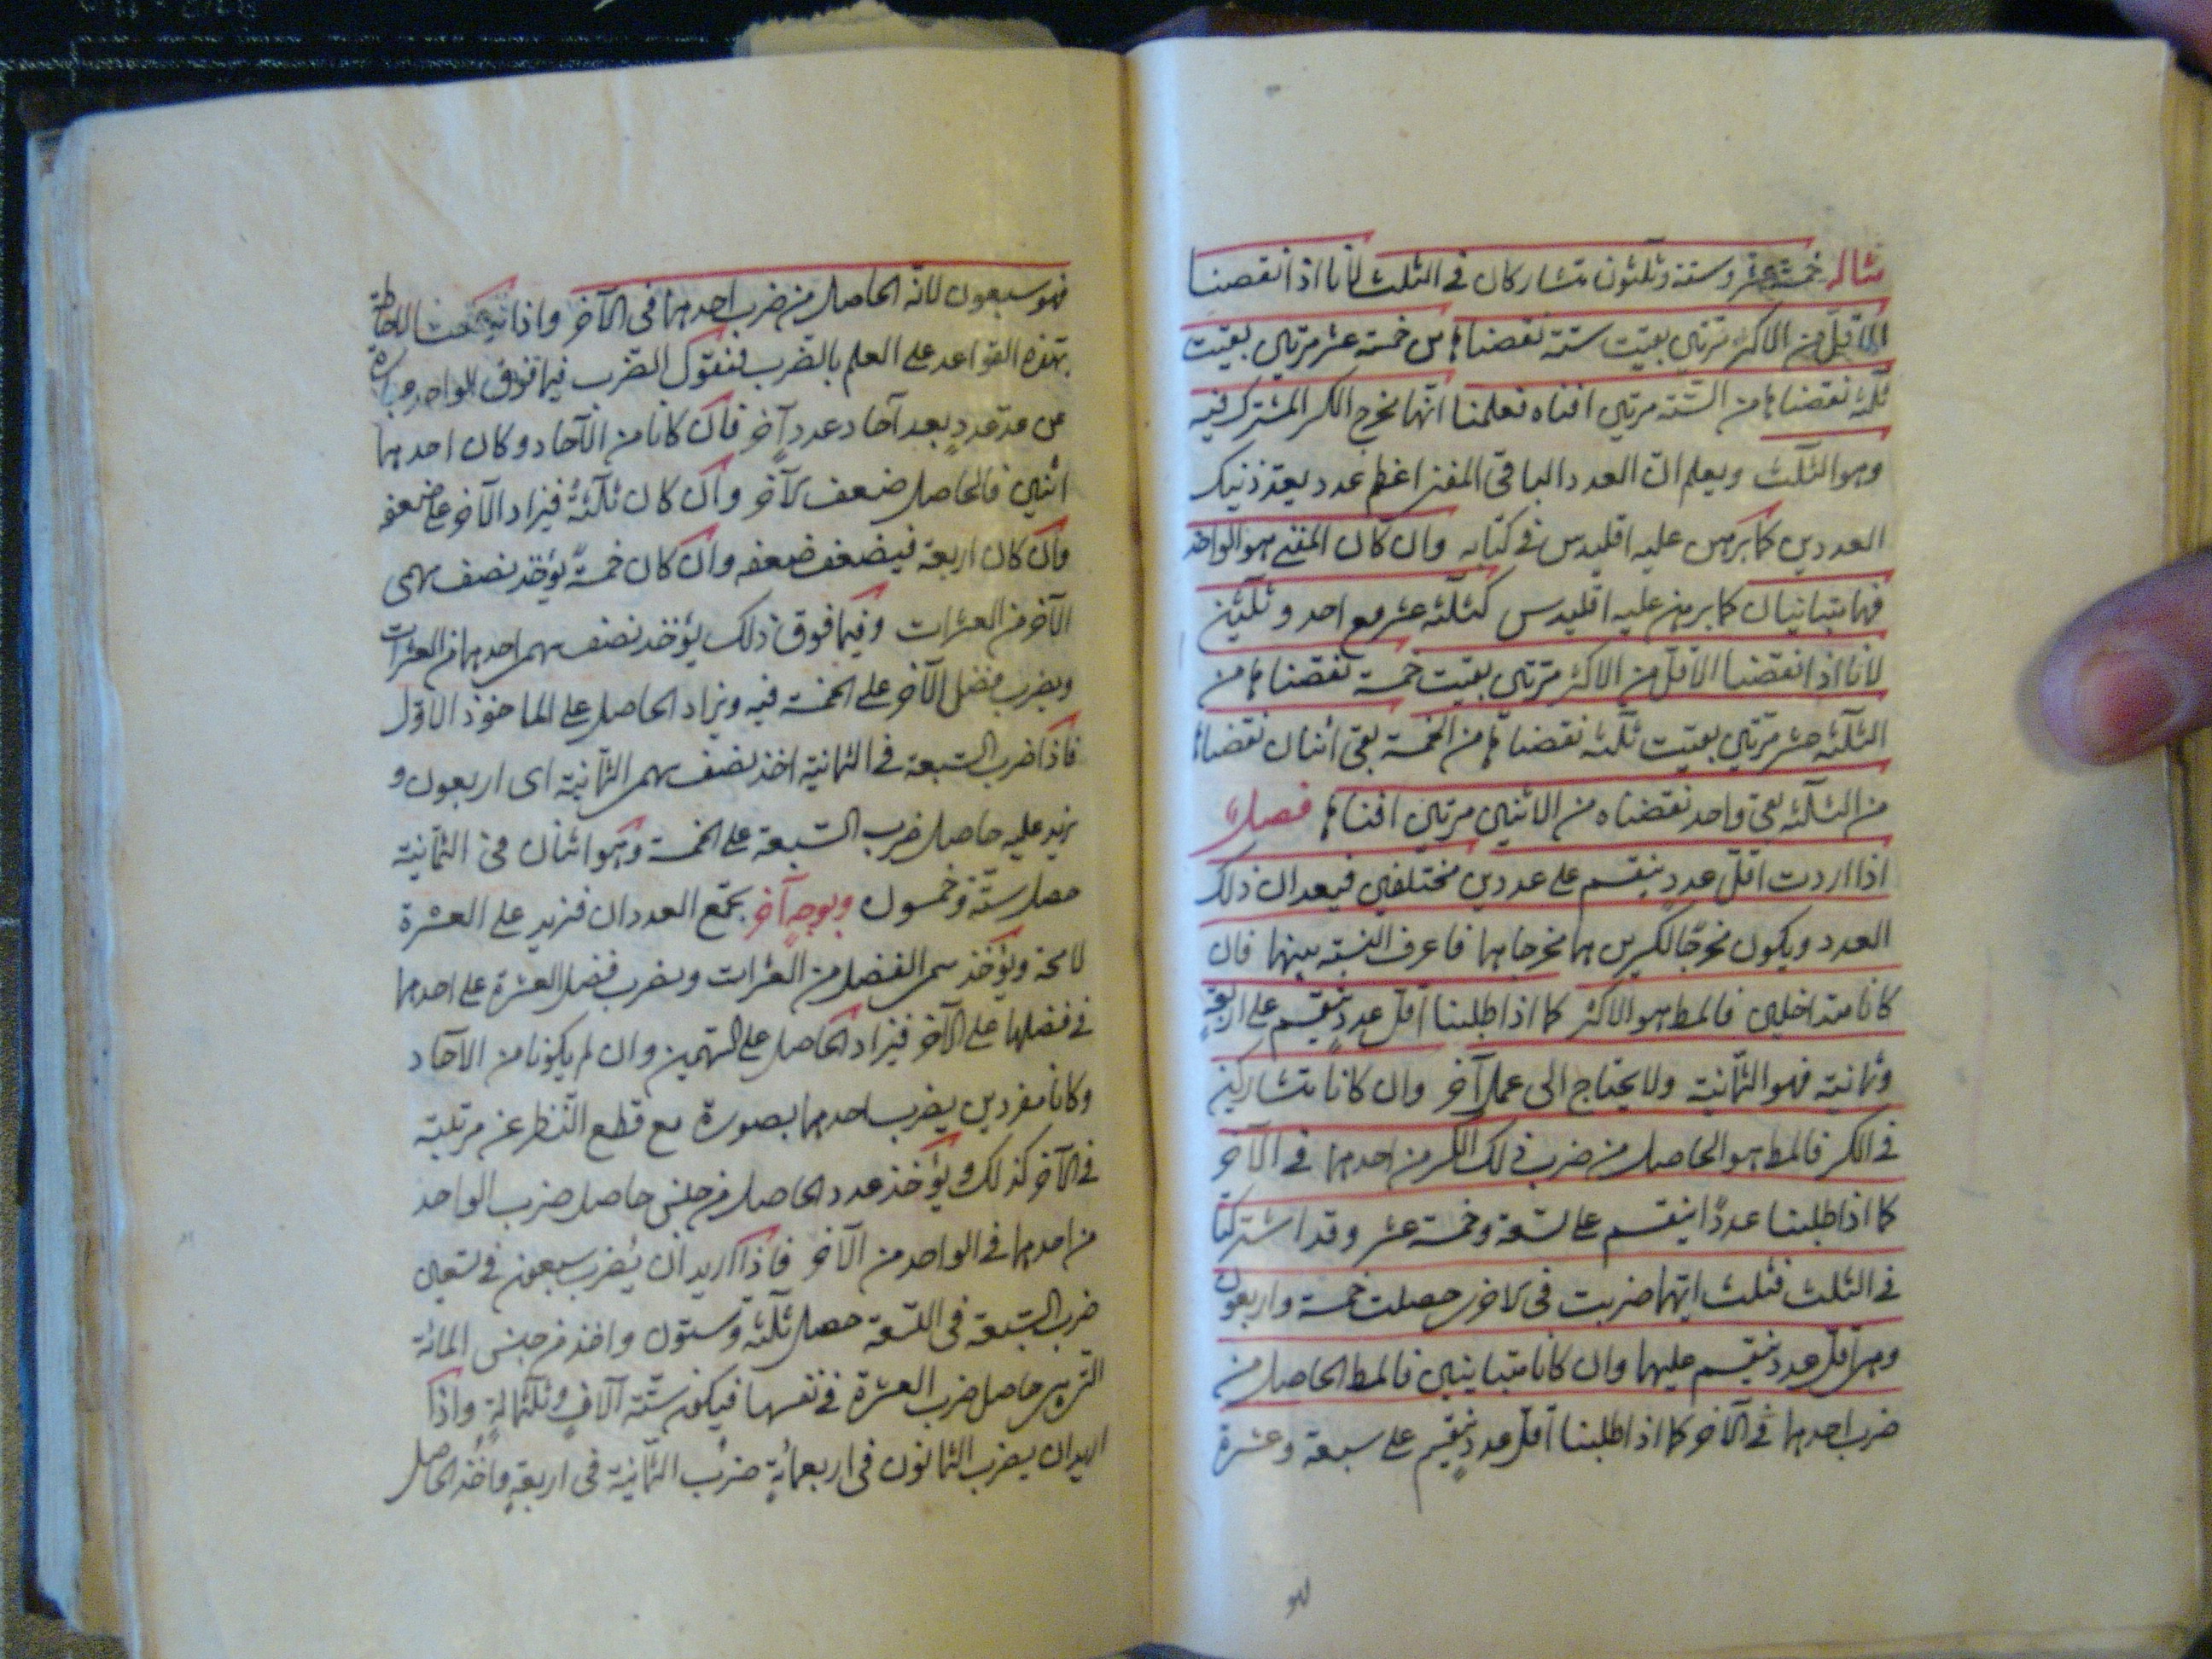 مثاله خمسة عشر وستة وثلثون متشاركان فى الثلث لانا اذا نقصنا
الاقل من الاكثر مرتين بقيت ستة نقصناها من خمسة عشر مرتين بقيت
ثلثة نقصناها من الستة مرتين افناه فعلمنا انها مخرج الكسر المشترك فيه
وهو الثلث ويعلم ان العدد الباقى المفنى اعظم عدد يعد ذينك
العددين كما برهن عليه اقليدس فى كتابه وان كان المفنى هو الواحد
فهما متباينان كما برهن عليه اقليدس كثلثة عشر مع احد وثلثين
لانا اذا نقصنا الاقل من الاكثر مرتين بقيت خمسة نقصناها من
الثلثة عشر مرتين بقيت ثلثة نقصناها من الخمسة بقى اثنان نقصناها
من الثلثة بقى واحد نقصناه من الاثنين مرتين افناها فصل
اذا اردت اقل عدد ينقسم على عددين مختلفين فيعدان ذلك
العدد ويكون مخرجًا لكسرين هما مخرجاهما فاعرف النسبة بينهما فان
كانا متداخلين فالمط هو الاكثر كما اذا طلبنا اقل عددٍ ينقسم على اربعةٍ
وثمانية فهو الثمانية ولا يحتاج الى عمل آخر وان كانا متشاركين
فى الكسر فالمط هو الحاصل من ضرب ذلك الكسر من احدهما فى الآخر
كما اذا طلبنا عددًا ينقسم على تسعة وخمسة عشر وقد اشتركتا
فى الثلث فثلث ايتهما ضربت فى الاخرى حصلت خمسة واربعون
وهى اقل عدد ينقسم عليهما وان كانا متباينين فالمط الحاصل من
ضرب احدهما فى الآخر كما اذا طلبنا اقل عددٍ ينقسم على سبعة وعشرة
فهو
فهو سبعون لانه الحاصل من ضرب احدهما فى الآخر واذا
بهذه القواعد على العلم بالضرب فنقول الضرب فيما فوق الواحد عبارة
عن عدّ عددٍ بعد آحاد عددٍ آخر فان كانا من الآحاد وكان احدهما
اثنين فالحاصل ضعف الآخر وان كان ثلثةً فيزاد الآخر على ضعفه
وان كان اربعة فيضعف ضعفه وان كان خمسةً يؤخذ نصف سمى
الآخر من العشرات وفيما فوق ذلك يؤخذ نصف سمى احدهما من العشرات
ويضرب فضل الآخر على الخمسة فيه ويزاد الحاصل على الماخوذ الاول
فاذا ضرب السبعة فى الثمانية اخذ نصف سمى الثمانية اى اربعون و
زيد عليه حاصل ضرب السبعة على الخمسة وهو اثنان فى الثمانية
حصل ستة وخمسون وبوجهٍ آخر يجمع العددان فنزيد على العشرة
لا محة ويؤخذ سمى الفضل من العشرات ويضرب فضل العشرة على احدهما
فى فضلها على الآخر فيزاد الحاصل على السهمين وان لم يكونا من الآحاد
وكانا مفردين يضرب احدهما بصورة مع قطع النظر عن مرتبته
فى الآخر كذلك ويؤخذ عدد الحاصل من جنس حاصل ضرب الواحد
من احدهما فى الواحد من الآخر فاذا اريد ان يُضرب سبعون فى تسعين
ضرب السبعة فى التسعة حصل ثلثة وستون واخذ من جنس المائة
التى هى حاصل ضرب العشرة فى نفسها فيكون ستة آلافٍ وثلثمائةٍ واذا
اريد ان يضرب الثمانون فى اربعمائةٍ ضرب الثمانية فى اربعةٍ واخذ الحاصل